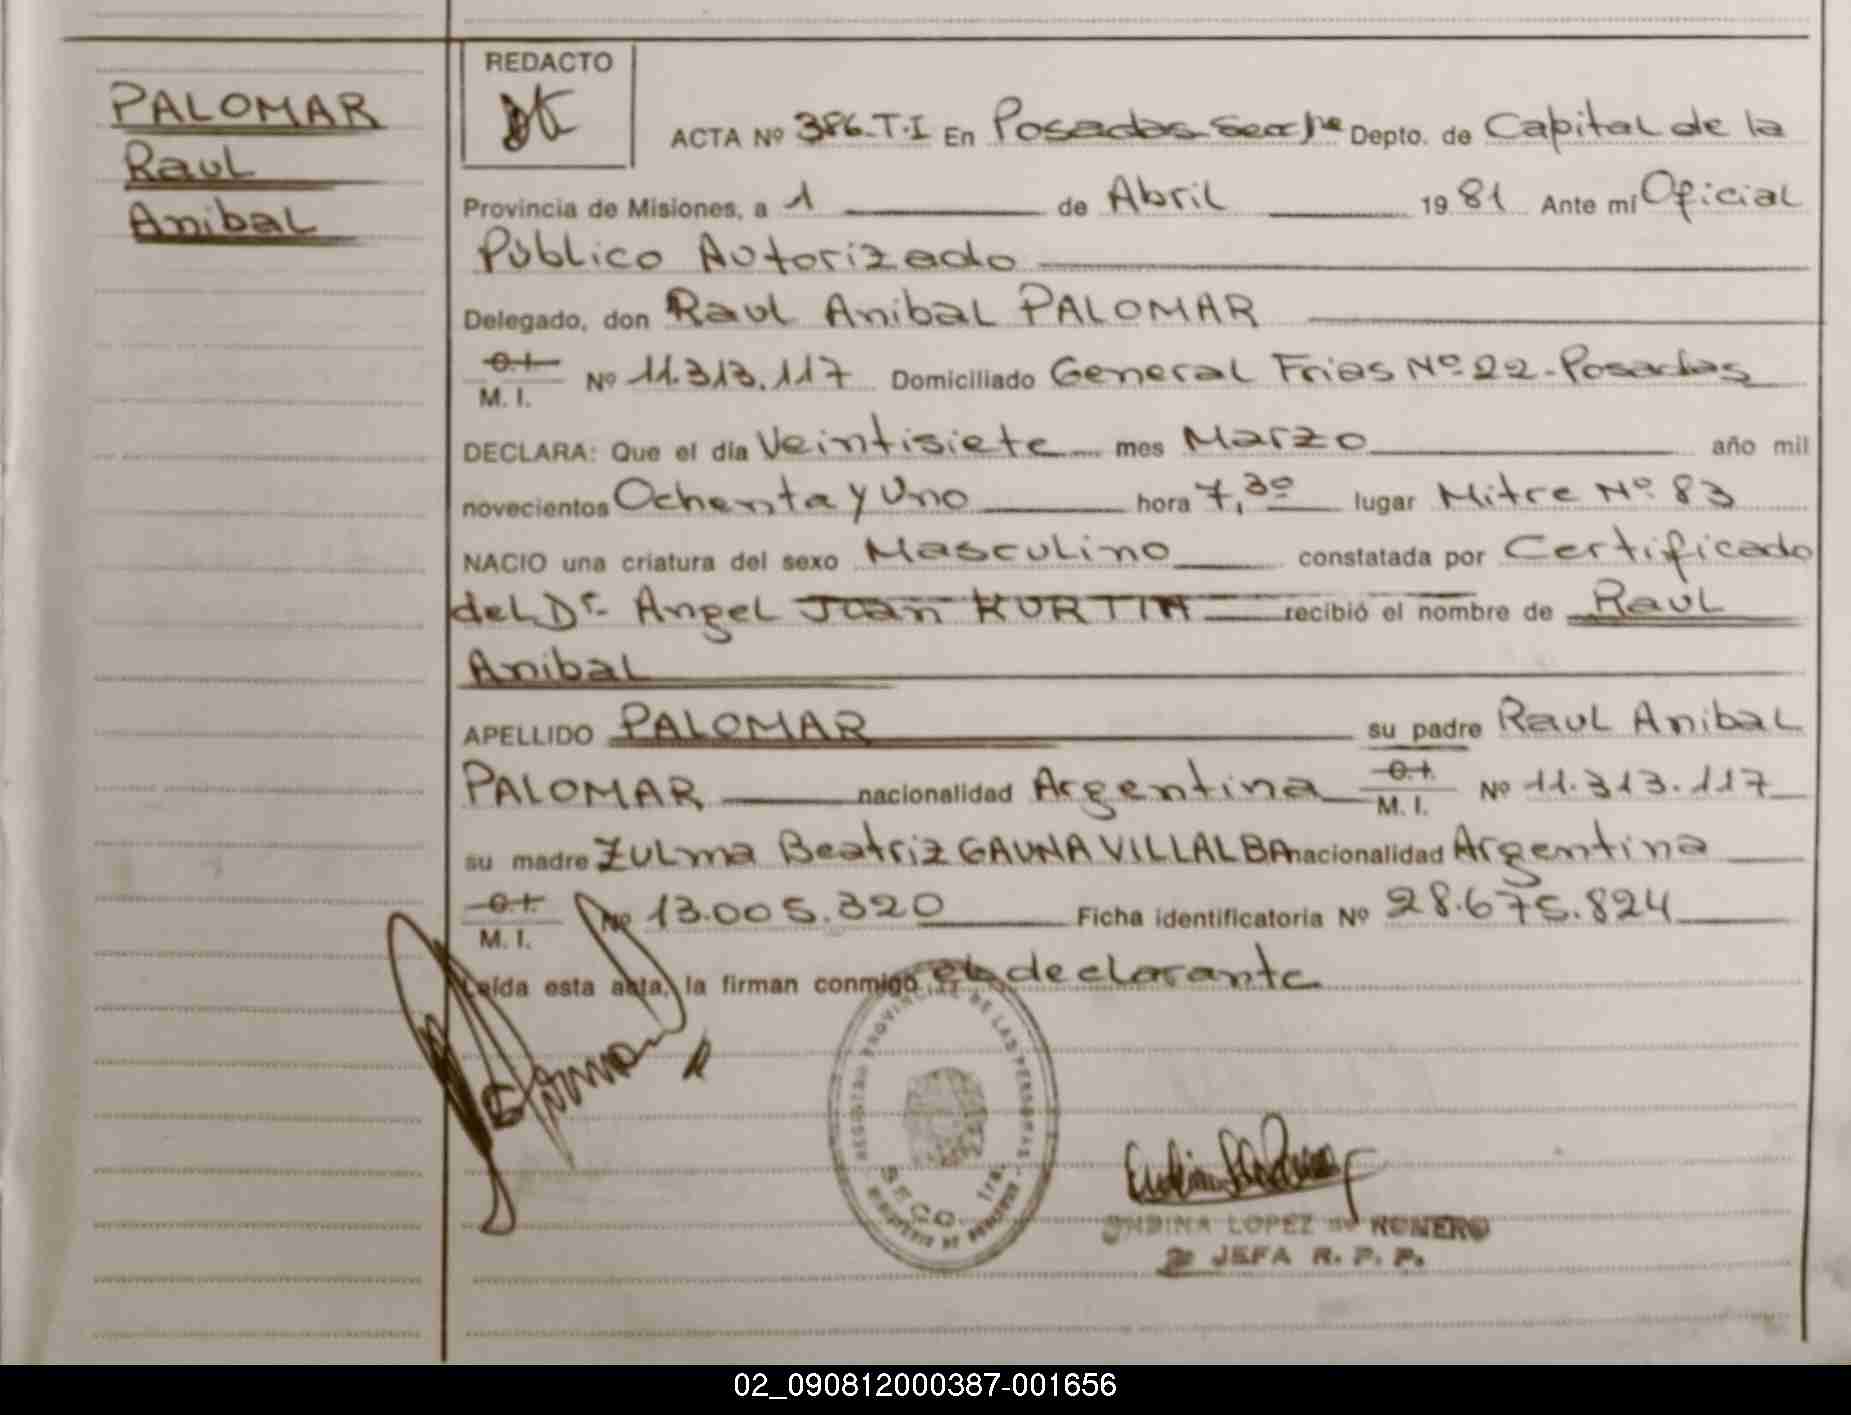 PALOMAR
Raul
Anibal
REDACTO
ACTA Nº 386-T.I En Posadas Secc 1ª Depto. de Capital de la
Provincia de Misiones, a 1 de Abril 1981 Ante mí Oficial
Público Autorizado
Delegado, don Raul Anibal PALOMAR
C.I.
M. I. Nº 11.313.117 Domiciliado General Frias Nº 22-Posadas
DECLARA: Que el día Veintisiete mes Marzo año mil
novecientos Ochenta y Uno hora 7,30 lugar Mitre Nº 83
NACIO una criatura del sexo Masculino constatada por Certificado
del Dr. Angel Juan KURTIN recibió el nombre de Raul
Anibal
APELLIDO PALOMAR su padre Raul Anibal
PALOMAR nacionalidad Argentina C.I. M. I. Nº 11.313.117
su madre Zulma Beatriz GAUNA VILLALBA nacionalidad Argentina
C.I.
M. I. Nº 13.005.320 Ficha identificatoria Nº 28.675.824
Leída esta acta, la firman conmigo el declarante
REGISTRO PROVINCIAL DE LAS PERSONAS
SECC. 1ra.
LOPEZ de ROMERO
JEFA R. P. P.
02_090812000387-001656